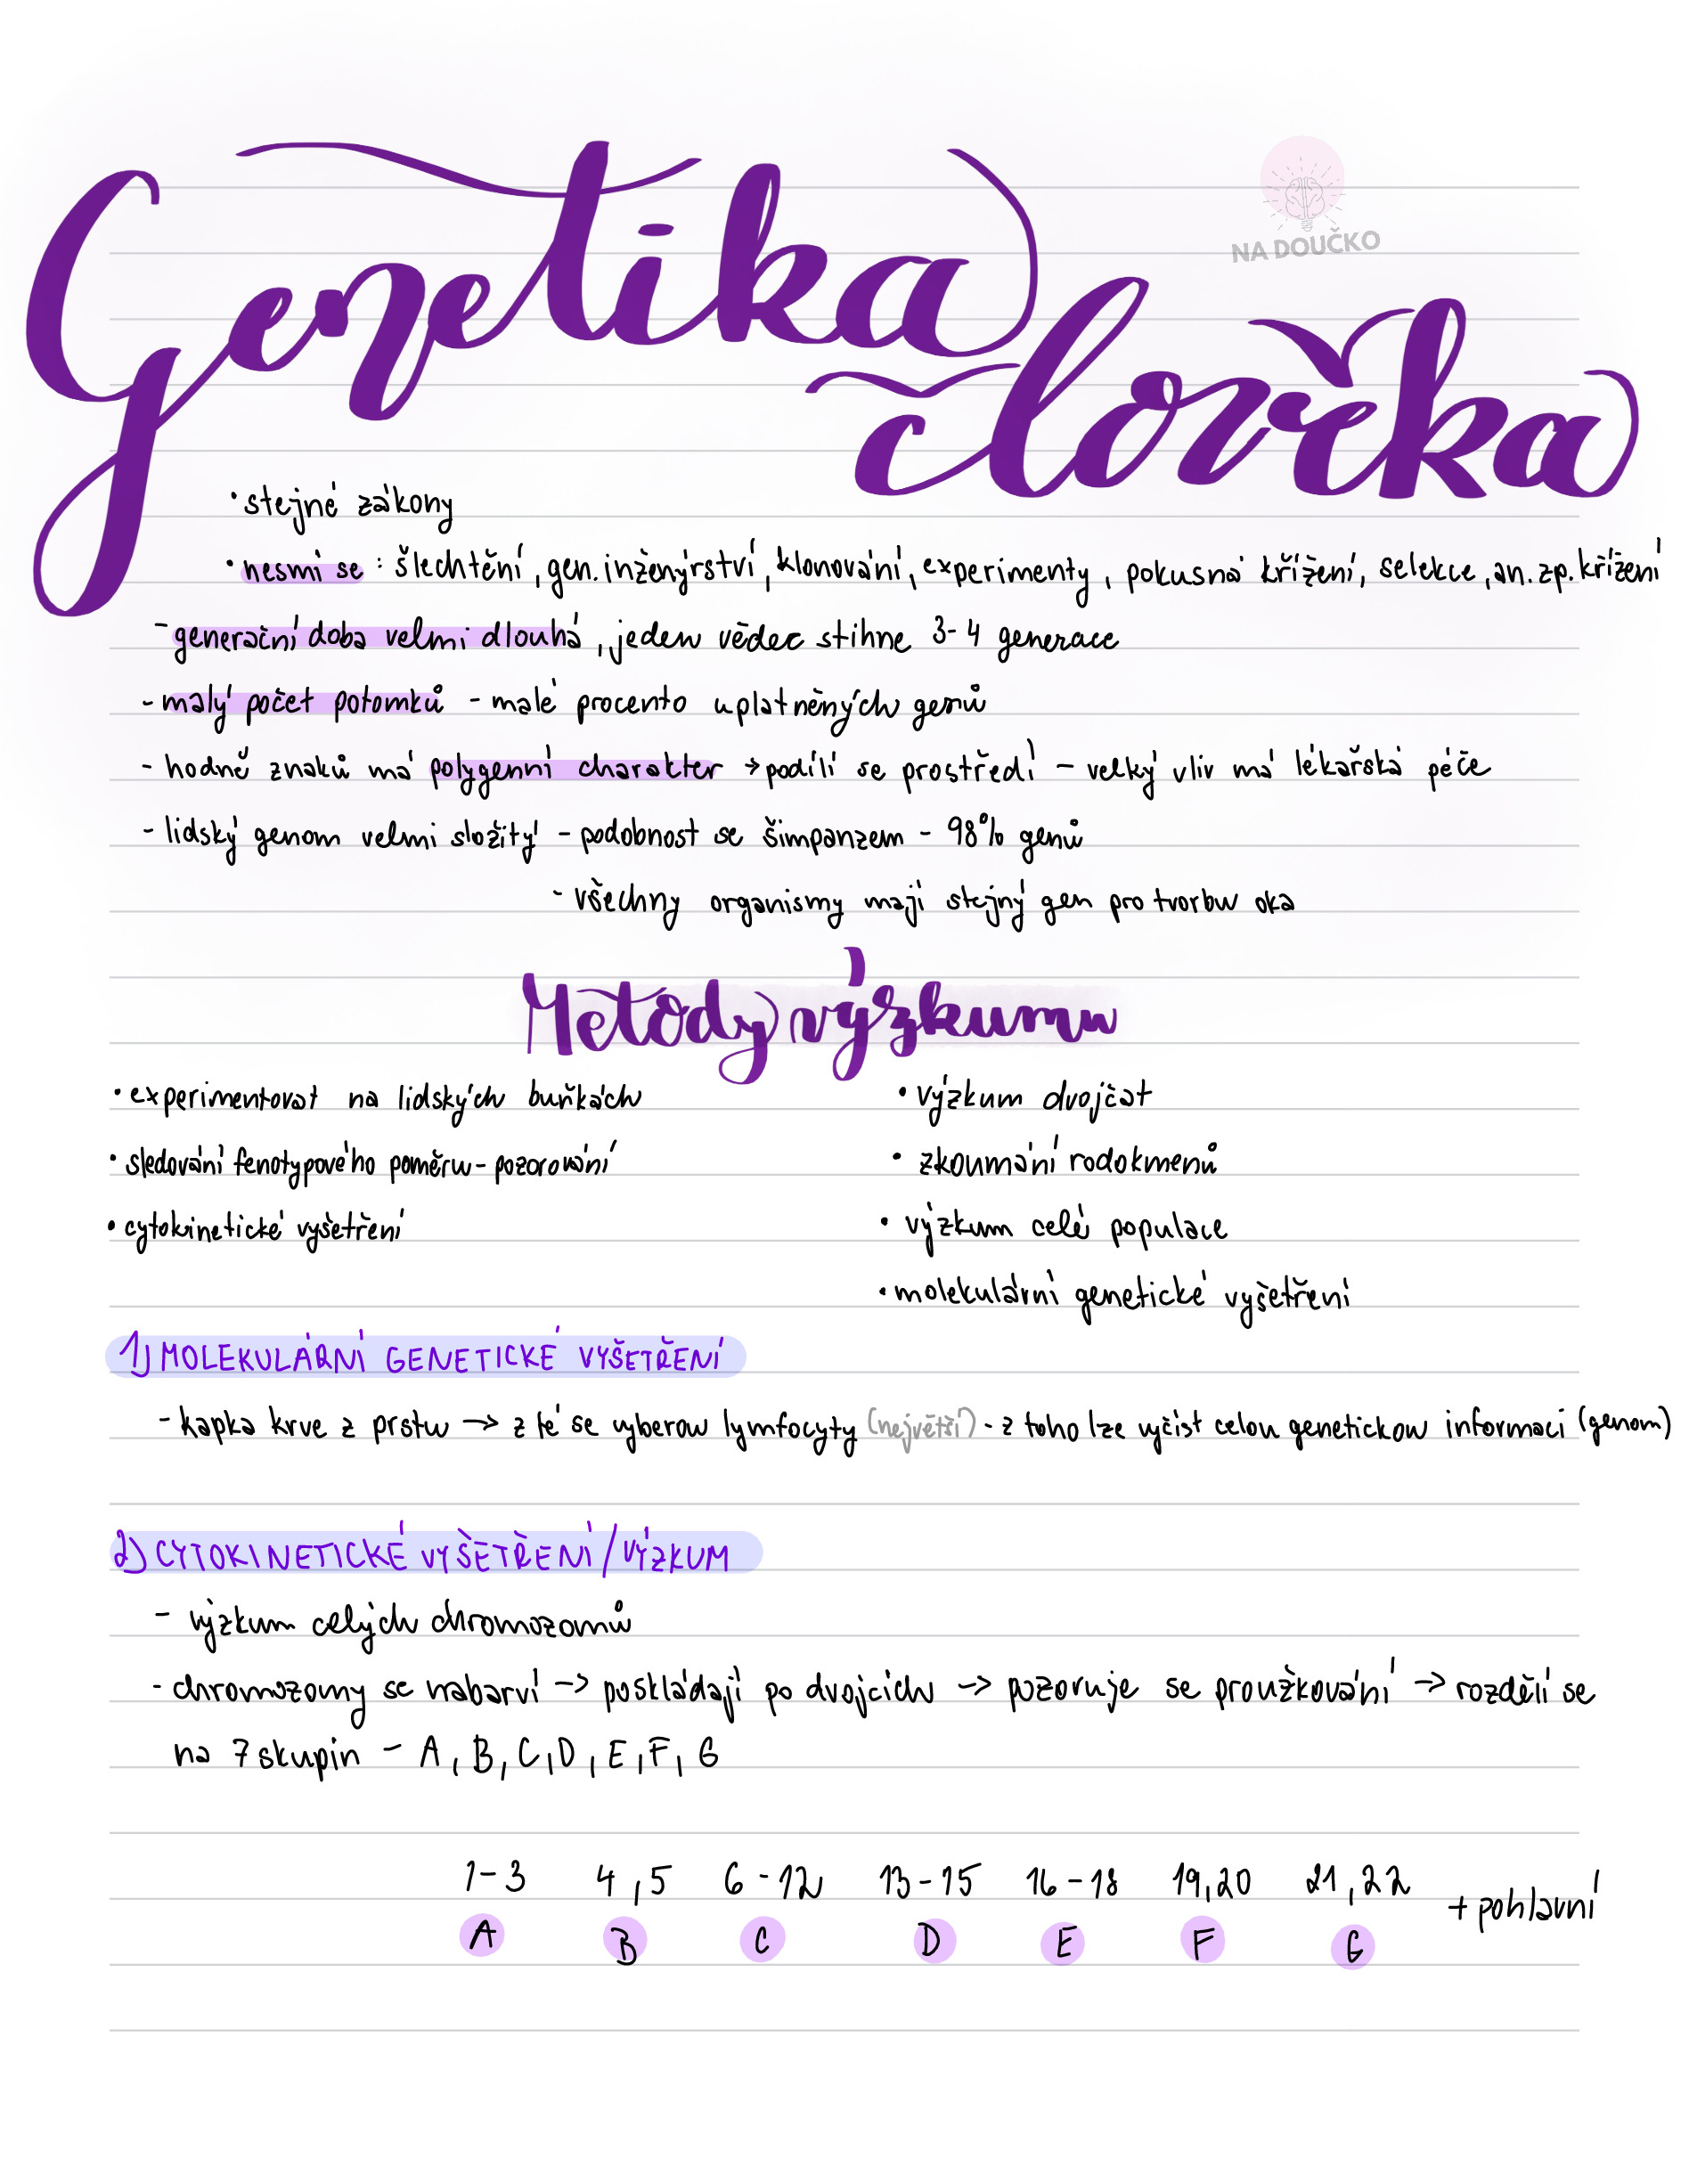 Genetika
NA DOUČKO
člověka
• stejné zákony
• nesmí se : šlechtění, gen. inženýrství, klonování, experimenty, pokusná křížení, selekce, an. zp. křížení
- generační doba velmi dlouhá, jeden vědec stihne 3-4 generace
- malý počet potomků - malé procento uplatněných genů
- hodně znaků má polygenní charakter → podílí se prostředí - velký vliv má lékařská péče
- lidský genom velmi složitý - podobnost se šimpanzem - 98% genů
- všechny organismy mají stejný gen pro tvorbu oka
Metody výzkumu
• experimentovat na lidských buňkách
• sledování fenotypového poměru - pozorování
• cytokinetické vyšetření
• výzkum dvojčat
• zkoumání rodokmenů
• výzkum celé populace
• molekulární genetické vyšetření
1) MOLEKULÁRNÍ GENETICKÉ VYŠETŘENÍ
- kapka krve z prstu → z té se vyberou lymfocyty (největší) - z toho lze vyčíst celou genetickou informaci (genom)
2) CYTOKINETICKÉ VYŠETŘENÍ / VÝZKUM
- výzkum celých chromozomů
- chromozomy se nabarví → poskládají po dvojcích → pozoruje se proužkování → rozdělí se
na 7 skupin - A, B, C, D, E, F, G
1-3 4,5 6-12 13-15 16-18 19,20 21,22 + pohlavní
A B C D E F G